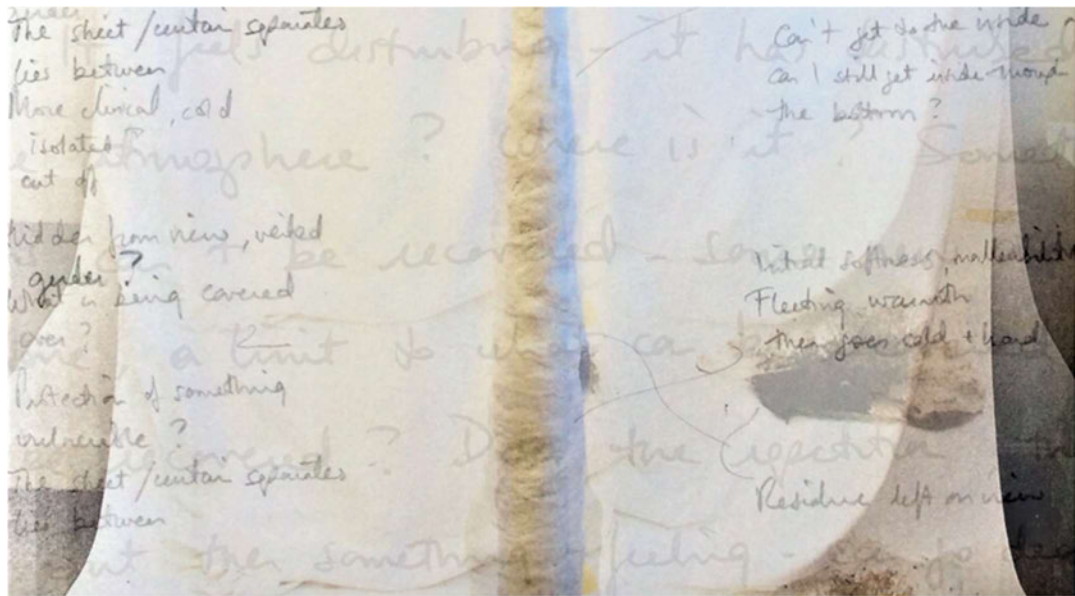 The sheet/curtain separates
lies between
More clinical, cold
isolated
cut off
Hidden from view, veiled
gender?
What is being covered
over?
Protection of something
vulnerable?
The sheet/curtain separates
lies between
Can't get to the inside
can I still get inside through
the bottom?
Initial softness, malleability
Fleeting warmth
then goes cold + hard
Residue left on view
feels disturbing - it has
atmosphere? Where is it?
be recorded -
a limit to what can
? Does the repetition
then something + feeling -